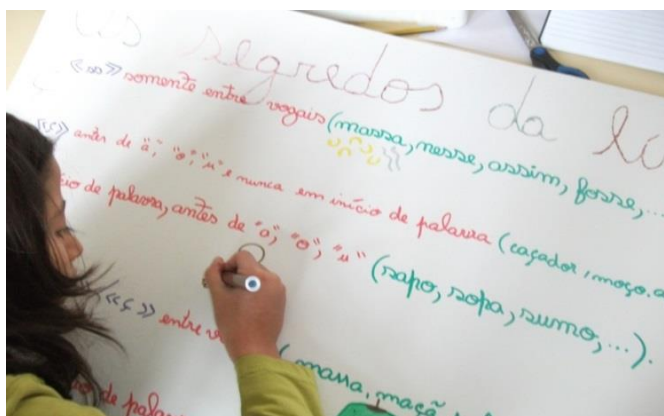 segredos da
«ss» somente entre vogais (massa, nesse, assim, fosse,...
«ç» antes de "a", "o", "u" e nunca em início de palavra (caçador, moço, a
cio de palavra, antes de "a", "o", "u" (sapo, sopa, sumo,...).
«ç» entre (massa, maçã,
de